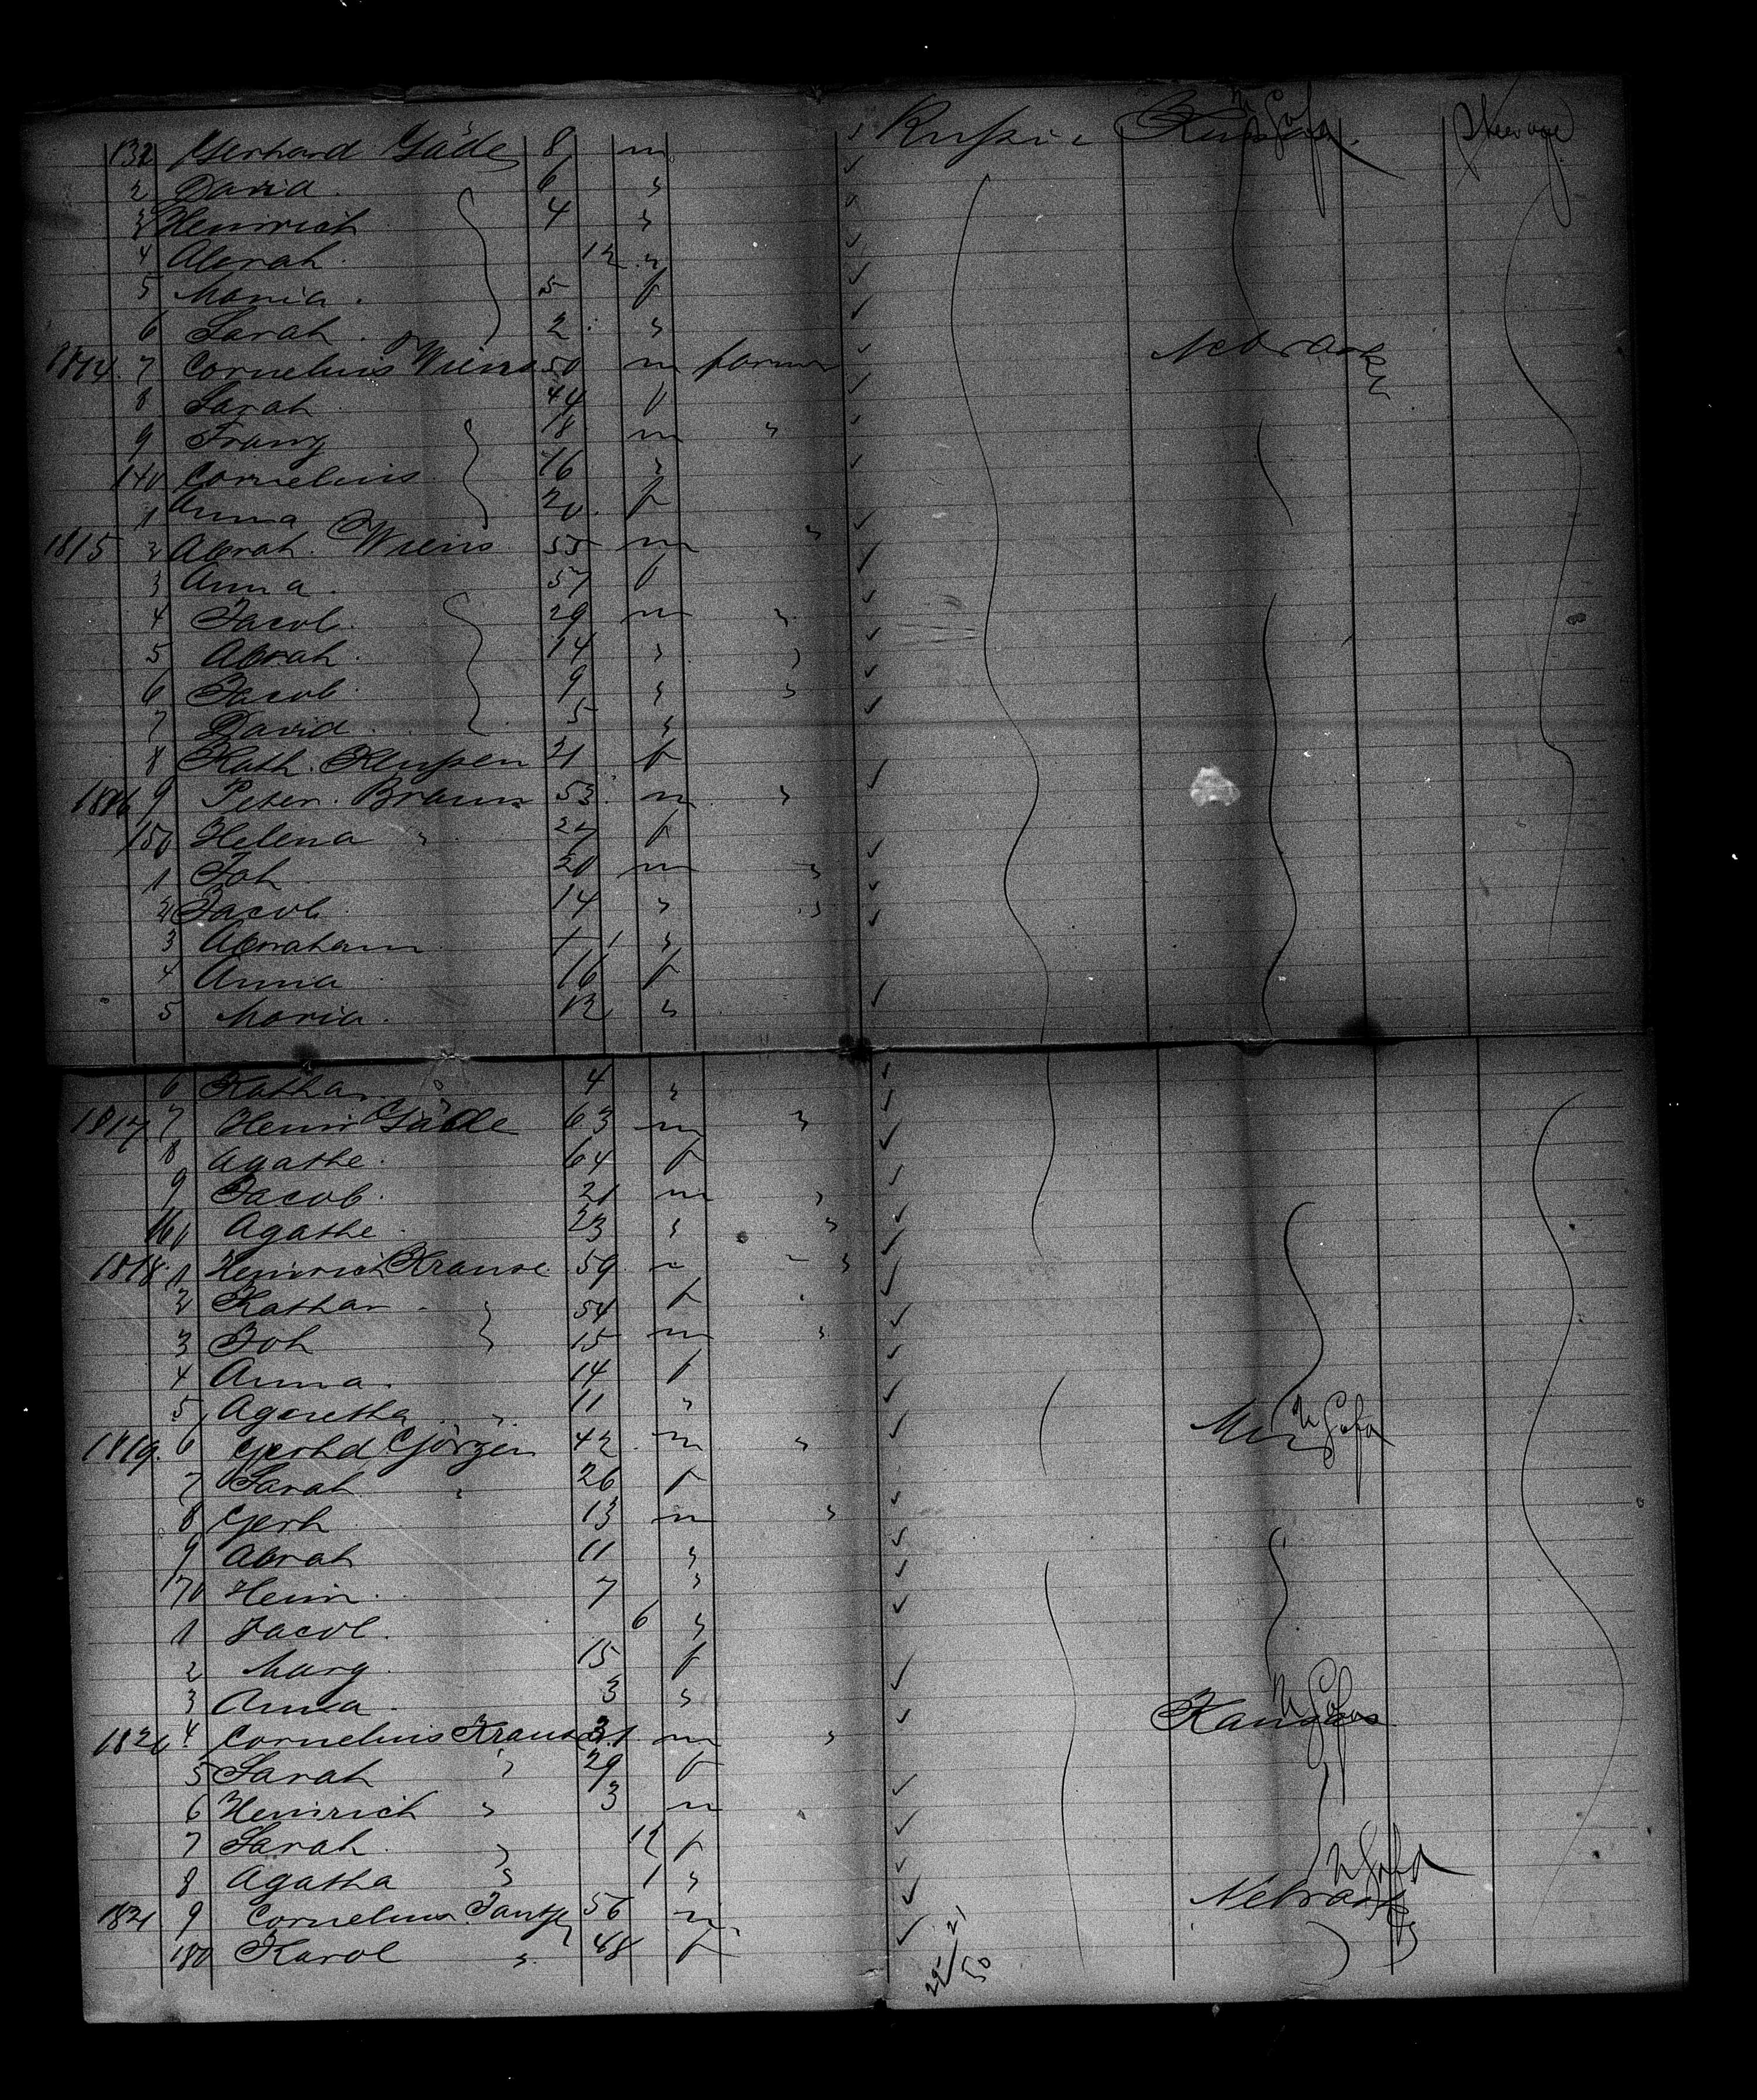 132 Gerhard Gäde 8 m Russia Kansas Steerage
2 David 6 "
3 Heinrich 4 "
4 Abrah. 12 "
5 Maria 5 f
6 Sarah 2 "
1814. 7 Cornelius Wiens 50 m farmer Nebraska
8 Sarah 44 f
9 Franz 18 m "
140 Cornelius 16 "
1 Anna 20 f
1815 2 Abrah. Wiens 55 m "
3 Anna 57 f
4 Jacob 29 m "
5 Abrah 14 " "
6 Jacob 9 " "
7 David 5 "
8 Kath. 21 f
1816 9 Peter Braun 53 m "
150 Helena " 27 f
1 Joh 20 m "
2 Jacob 14 " "
3 Abraham "
4 Anna 16 f
5 Maria 12 "
6 Kathar 4 "
1817 7 Heinr Gäde 63 m "
8 Agathe 64 f
9 Jacob 21 m "
160 Agathe 23 " "
1818 1 Heinrich Krause 59 m "
2 Kathar " 54 f
3 Joh 15 m "
4 Anna 14 f
5 Aganetha " 11 "
1819. 6 Gerhd Görzen 42 m "
7 Sarah " 26 f
8 Gerh 13 m "
9 Abrah 11 "
170 Heinr 7 "
1 Jacob 6 "
2 Marg 15 f
3 Anna 3 "
1820 4 Cornelius Krause 31 m " Kansas
5 Sarah " 29 f
6 Heinrich " 3 m
7 Sarah " 12 f
8 Agatha " 1 "
1821 9 Cornelius 56 m Nebraska
180 Karol " 48 f